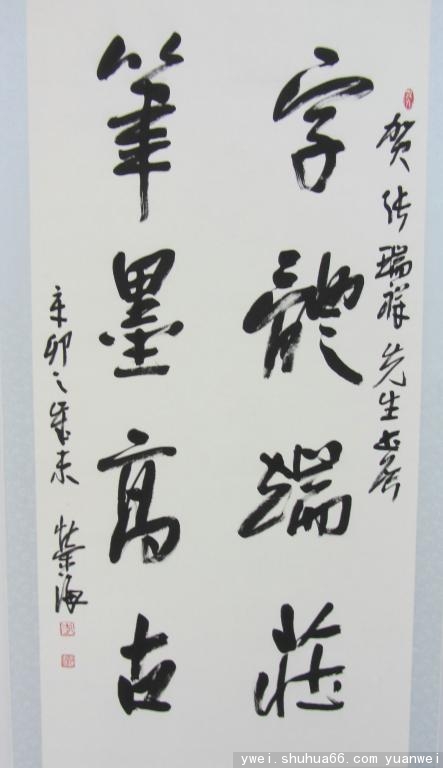 贺张瑞祥先生书展
字體端莊
筆墨高古
辛卯之歲末 荣海
ywei.shuhua66.com yuanwei